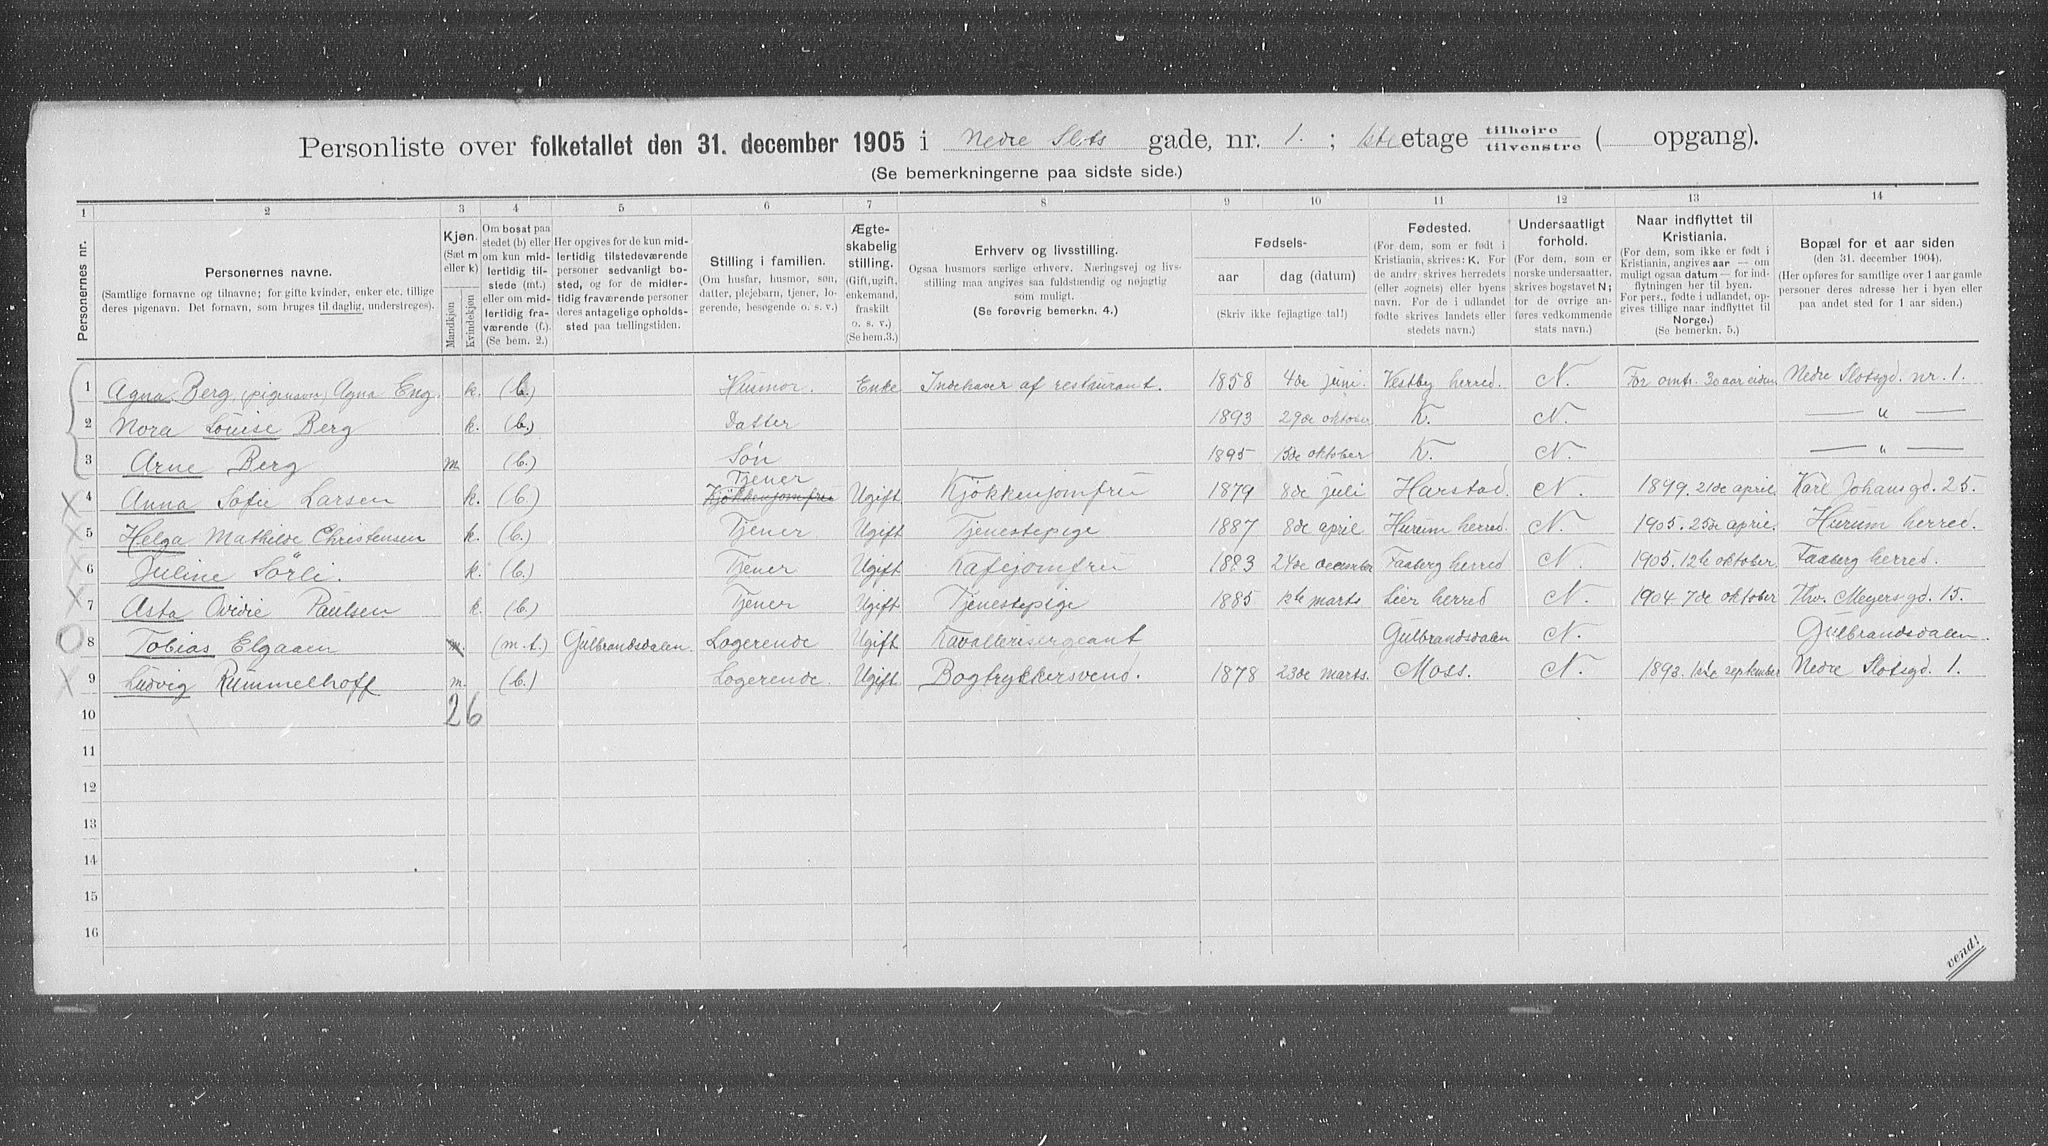 Personliste over folketallet den 31. december 1905 i Nedre Slots gade, nr. 1. ; 1ste etage tilhøjre tilvenstre ( opgang).
(Se bemerkningerne paa sidste side.)
1 2 3 4 5 6 7 8 9 10 11 12 13 14
Personernes nr.
Personernes navne.
(Samtlige fornavne og tilnavne; for gifte kvinder, enker etc. tillige deres pigenavn. Det fornavn, som bruges til daglig, understreges).
Kjøn.
(Sæt m eller k)
Mandkjøn
Kvindekjøn
Om bosat paa stedet (b) eller om kun midlertidig tilstede (mt.) eller om midlertidig fraværende (f.). (Se bem. 2.)
Her opgives for de kun midlertidig tilstedeværende personer sedvanlig bosted, og for de midlertidig fraværende personer deres antagelige opholdssted paa tællingstiden.
Stilling i familien.
(Om husfar, husmor, søn, datter, plejebarn, tjener, logerende, besøgende o. s. v.)
Ægteskabelig stilling.
(Gift, ugift, enkemand, fraskilt o. s. v.) (Se bem. 3.)
Erhverv og livsstilling.
Ogsaa husmors særlige erhverv. Næringsvej og livsstilling maa angives saa fuldstændig og nøjagtig som muligt.
(Se forøvrig bemerkn. 4.)
Fødsels-
aar dag (datum)
(Skriv ikke fejlagtige tal!)
Fødested.
(For dem, som er født i Kristiania, skrives: K. For de andre skrives herredets (eller sognets) eller byens navn. For de i udlandet fødte skrives landets eller stedets navn.)
Undersaatligt forhold.
(For dem, som er norske undersaatter, skrives bogstavet N; for de øvrige anføres vedkommende stats navn.)
Naar indflyttet til Kristiania.
(For dem, som ikke er født i Kristiania, angives aar — om muligt ogsaa datum — for indflytningen her til byen. For pers., fødte i udlandet, opgives tillige naar indflyttet til Norge.)
(Se bemerkn. 5.)
Bopæl for et aar siden
(den 31. december 1904).
(Her opføres for samtlige over 1 aar gamle personer deres adresse her i byen eller paa andet sted for 1 aar siden.)
1 Agna Berg (pigenavn) Agna Eng. k. (b.) Husmor. Enke Indehaver af restaurant. 1858 4de juni. Vestby herred. N. For omtr. 30 aar siden Nedre Slotsgd. nr. 1.
2 Nora Louise Berg k. (b.) Datter 1893 29de oktober K. N. — " —
3 Arne Berg m. (b.) Søn 1895 13de oktober K. N. — " —
4 Anna Sofie Larsen k. (b.) Tjener Kjøkkenjomfru Ugift Kjøkkenjomfru 1879 8de juli Harstad. N. 1899. 21de april. Karl Johansgd. 25.
5 Helga Mathilde Christensen k. (b.) Tjener Ugift Tjenestepige 1887 8de april Hurum herred. N. 1905. 25de april. Hurum herred.
6 Juline Sörli. k. (b.) Tjener Ugift Kafejomfru 1883 24de december Faaberg herred N. 1905. 12te oktober. Faaberg herred.
7 Asta Ovidie Paulsen k. (b.) Tjener Ugift Tjenestepige 1885 1ste marts Lier herred N. 1904 7de oktober Thv. Meyersgd. 15.
8 Tobias Elgaaen m. (m.t.) Gulbrandsdalen. Logerende Ugift Kavallerisergeant Gulbrandsdalen N. Gulbrandsdalen.
9 Ludvig Rummelhoff m. (b.) Logerende. Ugift Bogtrykkersvend. 1878 23de marts. Moss. N. 1893. 1ste september Nedre Slotsgd. 1.
10 2 6
11
12
13
14
15
16
vend!